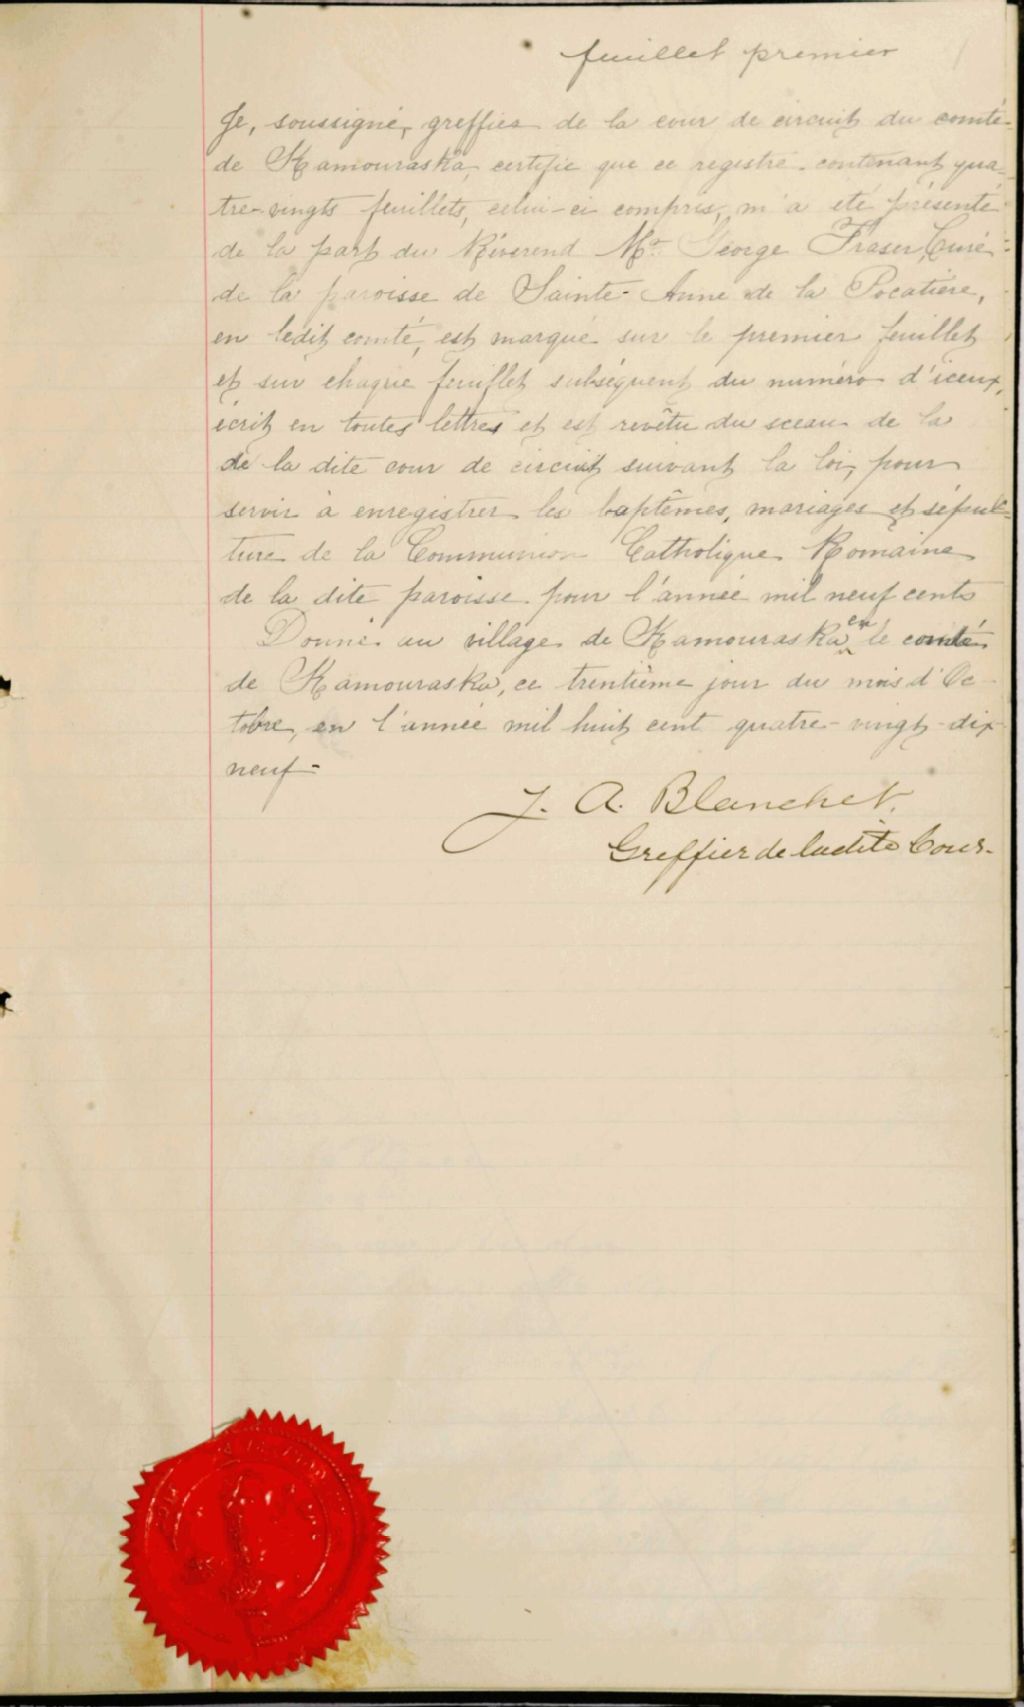 feuillet premier
Je, soussigné, greffier de la cour de circuit du comté
de Kamouraska, certifie que ce registre contenant qua-
tre-vingts feuillets, celui-ci compris, m'a été présenté
de la part du Révérend Mr. George Fraser, Curé
de la paroisse de Sainte-Anne de la Pocatière,
en ledit comté, est marqué sur le premier feuillet
et sur chaque feuillet subséquent du numéro d'iceux,
écrit en toutes lettres et est revêtu du sceau de la
de la dite cour de circuit suivant la loi, pour
servir à enregistrer les baptêmes, mariages et sépul-
ture de la Communion Catholique Romaine
de la dite paroisse pour l'année mil neuf cents
Donné au village de Kamouraska en le comté
de Kamouraska, ce trentième jour du mois d'Oc-
tobre, en l'année mil huit cent quatre-vingt-dix
neuf-
J. A. Blanchet.
Greffier de ladite Cour.